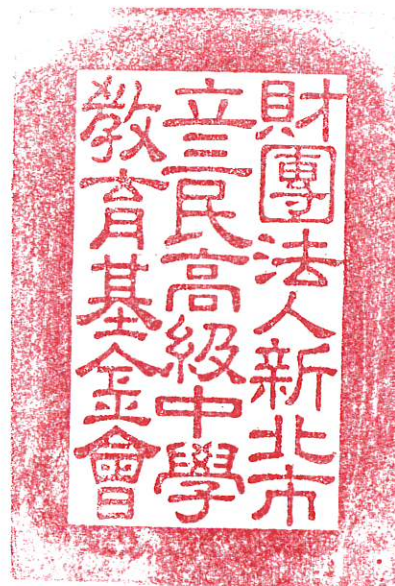 財團法人新北市
立三民高級中學
教育基金會